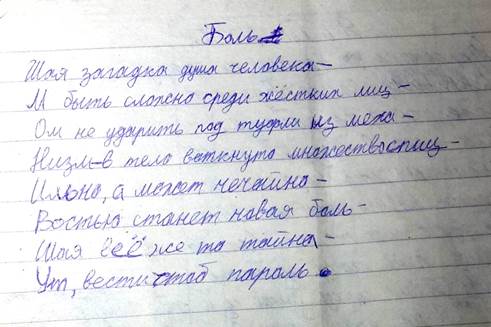 Боль
Шая загадка душа человека –
И быть сложно среди жёстких лиц –
Ом не ударить под туфли из меха –
Низм-в тело воткнуто множество спиц –
Ильно, а может нечайно –
Востью станет новая боль –
Шая её же та тайна –
Ут, вести чтоб пароль.